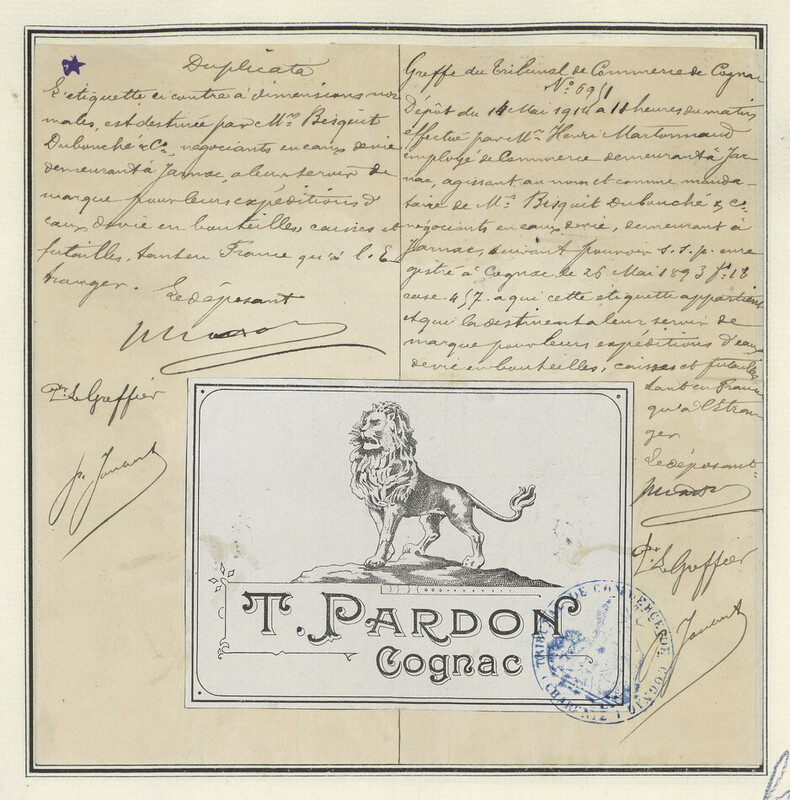 Duplicata
L'étiquette ci contre à dimensions nor
males, est destinée par Mrs Bisquit
Dubouché & Co, négociants en eaux de vie
demeurant à Jarnac, à leur servir de
marque pour leurs expéditions d'
eaux de vie en bouteilles, caisses et
futailles, tant en France qu'à l'E
tranger.
Le déposant
Pr Le Greffier
Greffe du Tribunal de Commerce de Cognac
No 691
Dépôt du 14 Mai 1914 à 11 heures du matin
effectué par Mr Henri Martonnaud
employé de Commerce demeurant à Jar
nac, agissant au nom et comme manda-
taire de Mrs Bisquit Dubouché & Co
négociants en eaux de vie, demeurant à
Jarnac, suivant pouvoir s.s.p. enre
gistré à Cognac le 26 Mai 1893 fo 18
case 457. a qui cette étiquette appartient
et qui la destinent à leur servir de
marque pour leurs expéditions d'eaux
de vie en bouteilles, caisses et futailles
tant en France
qu'à l'Etran
ger
Le déposant
Pr Le Greffier
T. PARDON
Cognac
TRIBUNAL DE COMMERCE DE COGNAC
(CHARENTE)